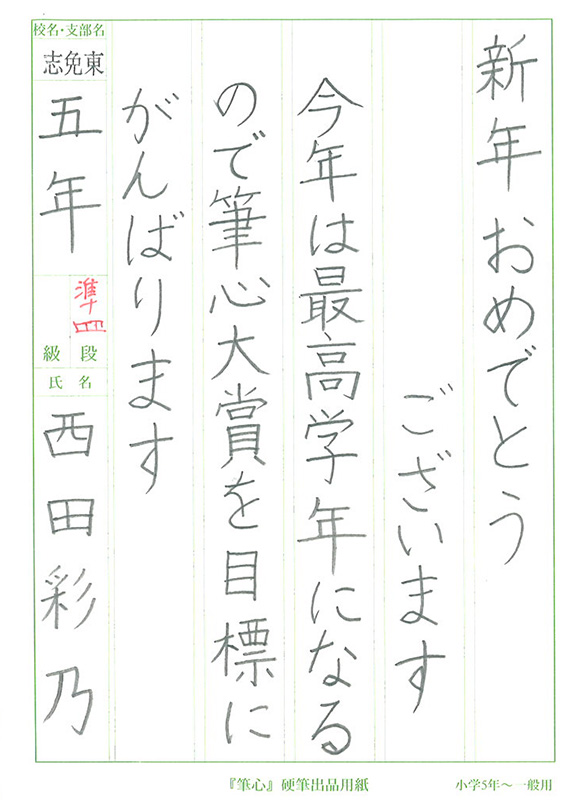 新年おめでとう
ございます
今年は最高学年になる
ので筆心大賞を目標に
がんばります
校名・支部名
志免東
五年
準四
級 段
氏 名
西田彩乃
『筆心』硬筆出品用紙
小学5年～一般用